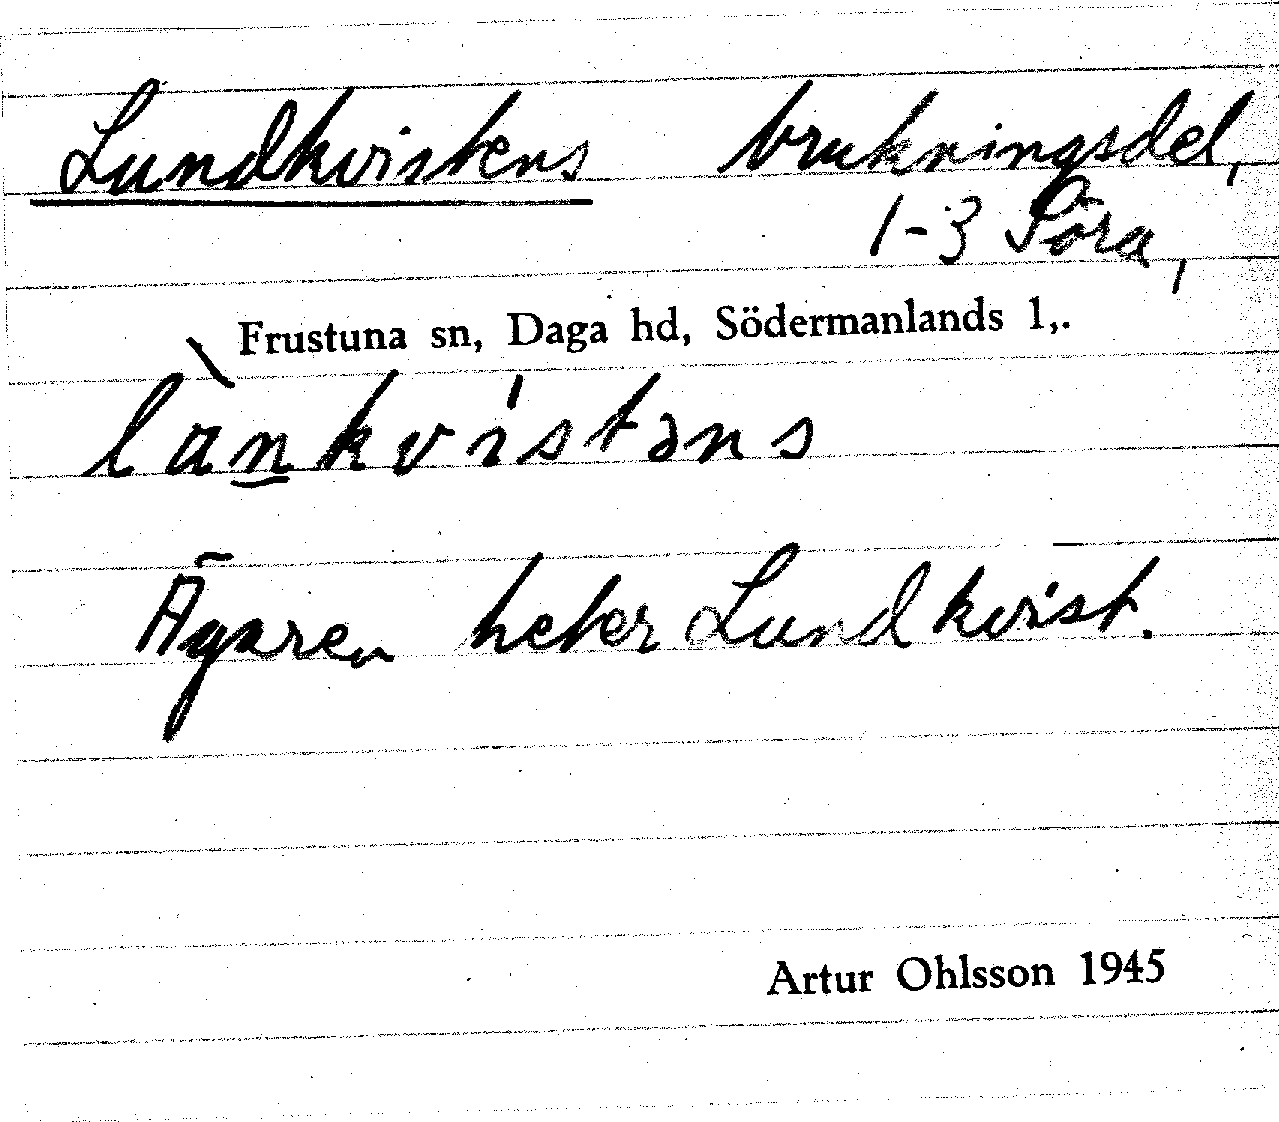 Lundkvistens brukningsdel,
1-3 Söra,
Frustuna sn, Daga hd, Södermanlands l,.
lànkvístəns
Ägaren heter Lundkvist.
Artur Ohlsson 1945